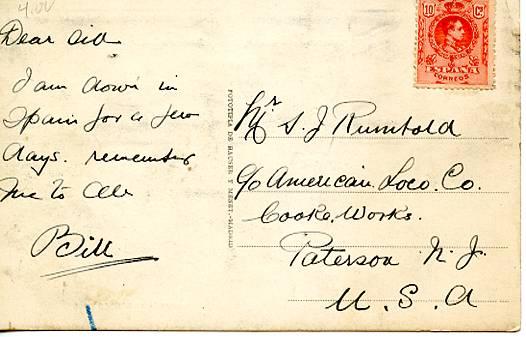 4.00
Dear Sid
I am down in
Spain for a few
days. remember
me to all
Bill
FOTOTIPIA DE HAUSER Y MENET.-MADRID
10 Cs
ESPAÑA
CORREOS
Mr S. J Rumbold
c/o American Loco. Co.
Cooke Works.
Paterson N. J.
U. S. A